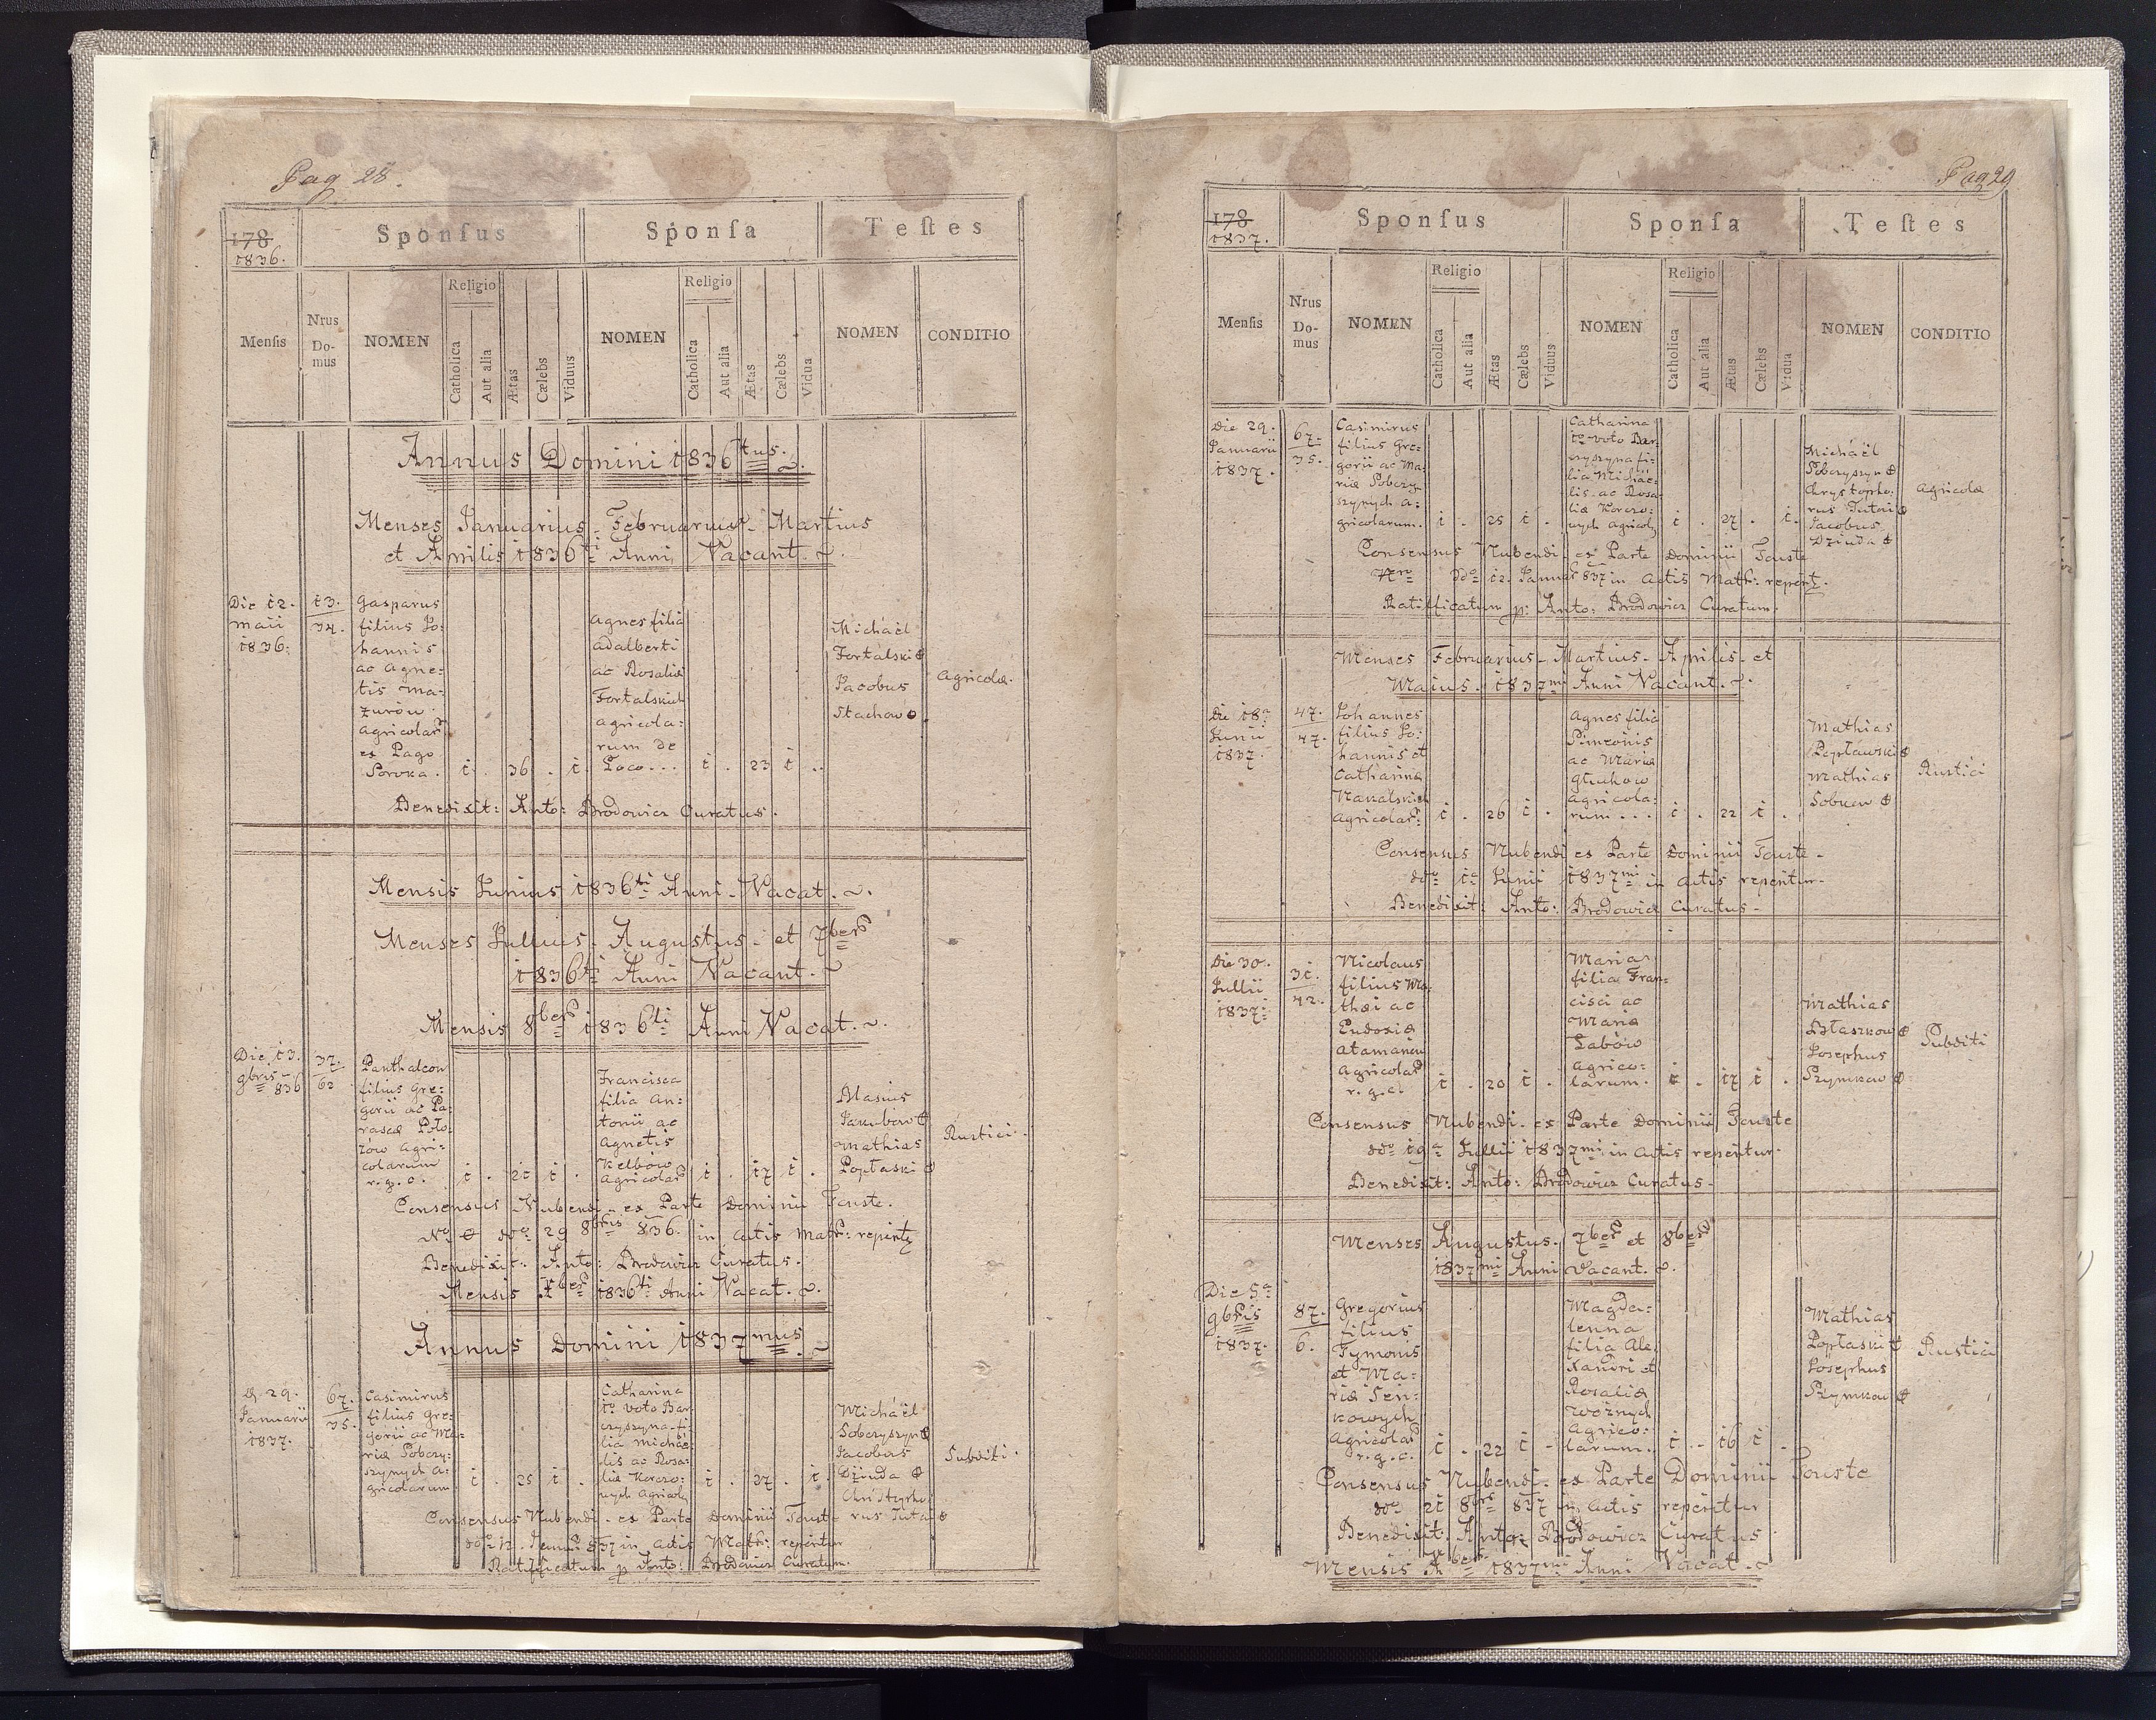 Pag 28.
178
1836.
Sponſus
Sponſa
Teſtes
Menſis
Nrus Do-mus
NOMEN
Religio
Catholica
Aut alia
Ætas
Cælebs
Viduus
NOMEN
Religio
Catholica
Aut alia
Ætas
Cælebs
Vidua
NOMEN
CONDITIO
Annus Domini 1836tus.
Menses Januarius - Februarius - Martius
et Aprilis 1836ti Anni Vacant.
Die 12.
Maii
1836.
13.
34.
Gasparus
filius Jo:
hannis
ac Agne-
tis Ma-
zurów
Agricolar
ex Pago
1 . 36 . 1.
Agnes filia
Adalberti
ac Rosaliæ
Fortalskich
Agricola:
rum de
Loco...
1 . 23 1 ..
Michaël
Fortalski
Jacobus
Stachow
Agricolæ.
Benedixit: Anto: Brodowicz Curatus.
Mensis Junius 1836ti Anni - Vacat.
Menses Jullius - Augustus - et 7ber
1836ti Anni Vacant.
Mensis 8ber 1836ti Anni Vacat.
Die 13.
9bris 836
37.
62
Panthaleon
filius Gre-
gorii ac Pa-
rascæ Poło-
zów Agri-
colarum
r. g. c.
1 . 21 1 .
Francisca
filia An-
tonii ac
Agnetis
Kelbów
Agricolar
1 . 17 1 .
Blasius
Jakubów
Mathias
Poptaski
Rustici.
Consensus Nubendi - ex Parte Dominii Fouste.
ddo 29 8bris 836. in Actis Matr: repertz
Benedixit: Anto: Brodowicz Curatus.
Mensis Xber 1836ti Anni Vacat.
Annus Domini 1837mus
D. 29.
Januarii
1837.
67.
35.
Casimirus
filius Gre-
gorii ac Ma-
riæ Sobczy-
szynych A-
gricolarum
1 . 25 1 .
Catharina
1o voto Bar-
czyszyna fi-
lia Michaë-
lis ac Rosa-
liæ Korczo-
nych Agricol
1 . 27 . 1.
Michaël
Sobczyszyn
Jacobus
Dziuda
Christopho
rus Tutai
Subditi.
Consensus Nubendi - ex Parte Dominii Fouste
ddo 12. Januar 837 in Actis Matr: reperitur
Ratificatum p Anto: Brodowicz Curatum.
Pag 29
178
1837.
Sponſus
Sponſa
Teſtes
Menſis
Nrus Do-mus
NOMEN
Religio
Catholica
Aut alia
Ætas
Cælebs
Viduus
NOMEN
Religio
Catholica
Aut alia
Ætas
Cælebs
Vidua
NOMEN
CONDITIO
Die 29.
Januarii
1837.
67.
35.
Casimirus
filius Gre-
gorii ac Ma-
riæ Sobczy-
szynych A-
gricolarum.
1 . 25 1 .
Catharina
1o voto Bar-
czyszyna fi-
lia Michaë-
lis ac Rosa-
liæ Korczo-
nych Agricol
1 . 27 . 1.
Michaël
Sobczyszyn
Chrystopho-
rus Tutai
Jacobus
Dziuda
Agricolæ
Consensus Nubendi ex Parte Dominii Fouste
ddo 12. Januar 837 in Actis Matr: repert.
Ratificatum p: Anto: Brodowicz Curatum.
Menses Februarius - Martius - Aprilis - et
Maius. 1837mi Anni Vacant.
Die 18a
Junii
1837.
47.
47.
Johannes
filius Jo:
hannis et
Catharinæ
Agricolar:
1 . 26 1 .
Agnes filia
Simeonis
ac Mariæ
Głuchow
Agricola:
rum...
1 . 22 1 .
Mathias
Poptawski
Mathias
Sobków
Rustici
Consensus Nubendi ex Parte Dominii Fouste -
ddo 1a Junii 1837mi in Actis reperitur -
Benedixit: Anto: Brodowicz Curatus -
Die 30.
Jullii
1837.
31.
42.
Nicolaus
filius Ma-
thæi ac
Eudoxiæ
Atamanów
Agricolar
r. g. c.
1 . 20 1 .
Maria
filia Fran-
cisci ac
Mariæ
Łabów
Agrico-
larum.
1 . 17 1 .
Mathias
Błaszków
Josephus
Szymkow
Subditi
Consensus Nubendi - ex Parte Dominii Fouste
ddo 19a Jullii 1837mi in Actis reperitur.
Benedixit: Anto: Brodowicz Curatus -
Menses Augustus. 7ber et 8ber
1837mi Anni Vacant.
Die 5a
9bris
1837.
87.
6.
Gregorius
filius
Tymonis
et Ma-
riæ Sen-
kowych
Agricolar
r. g. c.
1 . 22 1 -
Magda-
lenna
filia Ale-
xandri et
Rosaliæ
Woźnych
Agrico-
larum.
1 . 16 1 -
Mathias
Poptaski
Josephus
Szymkow
Rustici
Consensus Nubendi - ex Parte Dominii Fouste
ddo 21 8bris 837 in Actis reperitur
Benedixit. Anto: Brodowicz Curatus
Mensis Xber 1837mi Anni Vacat.